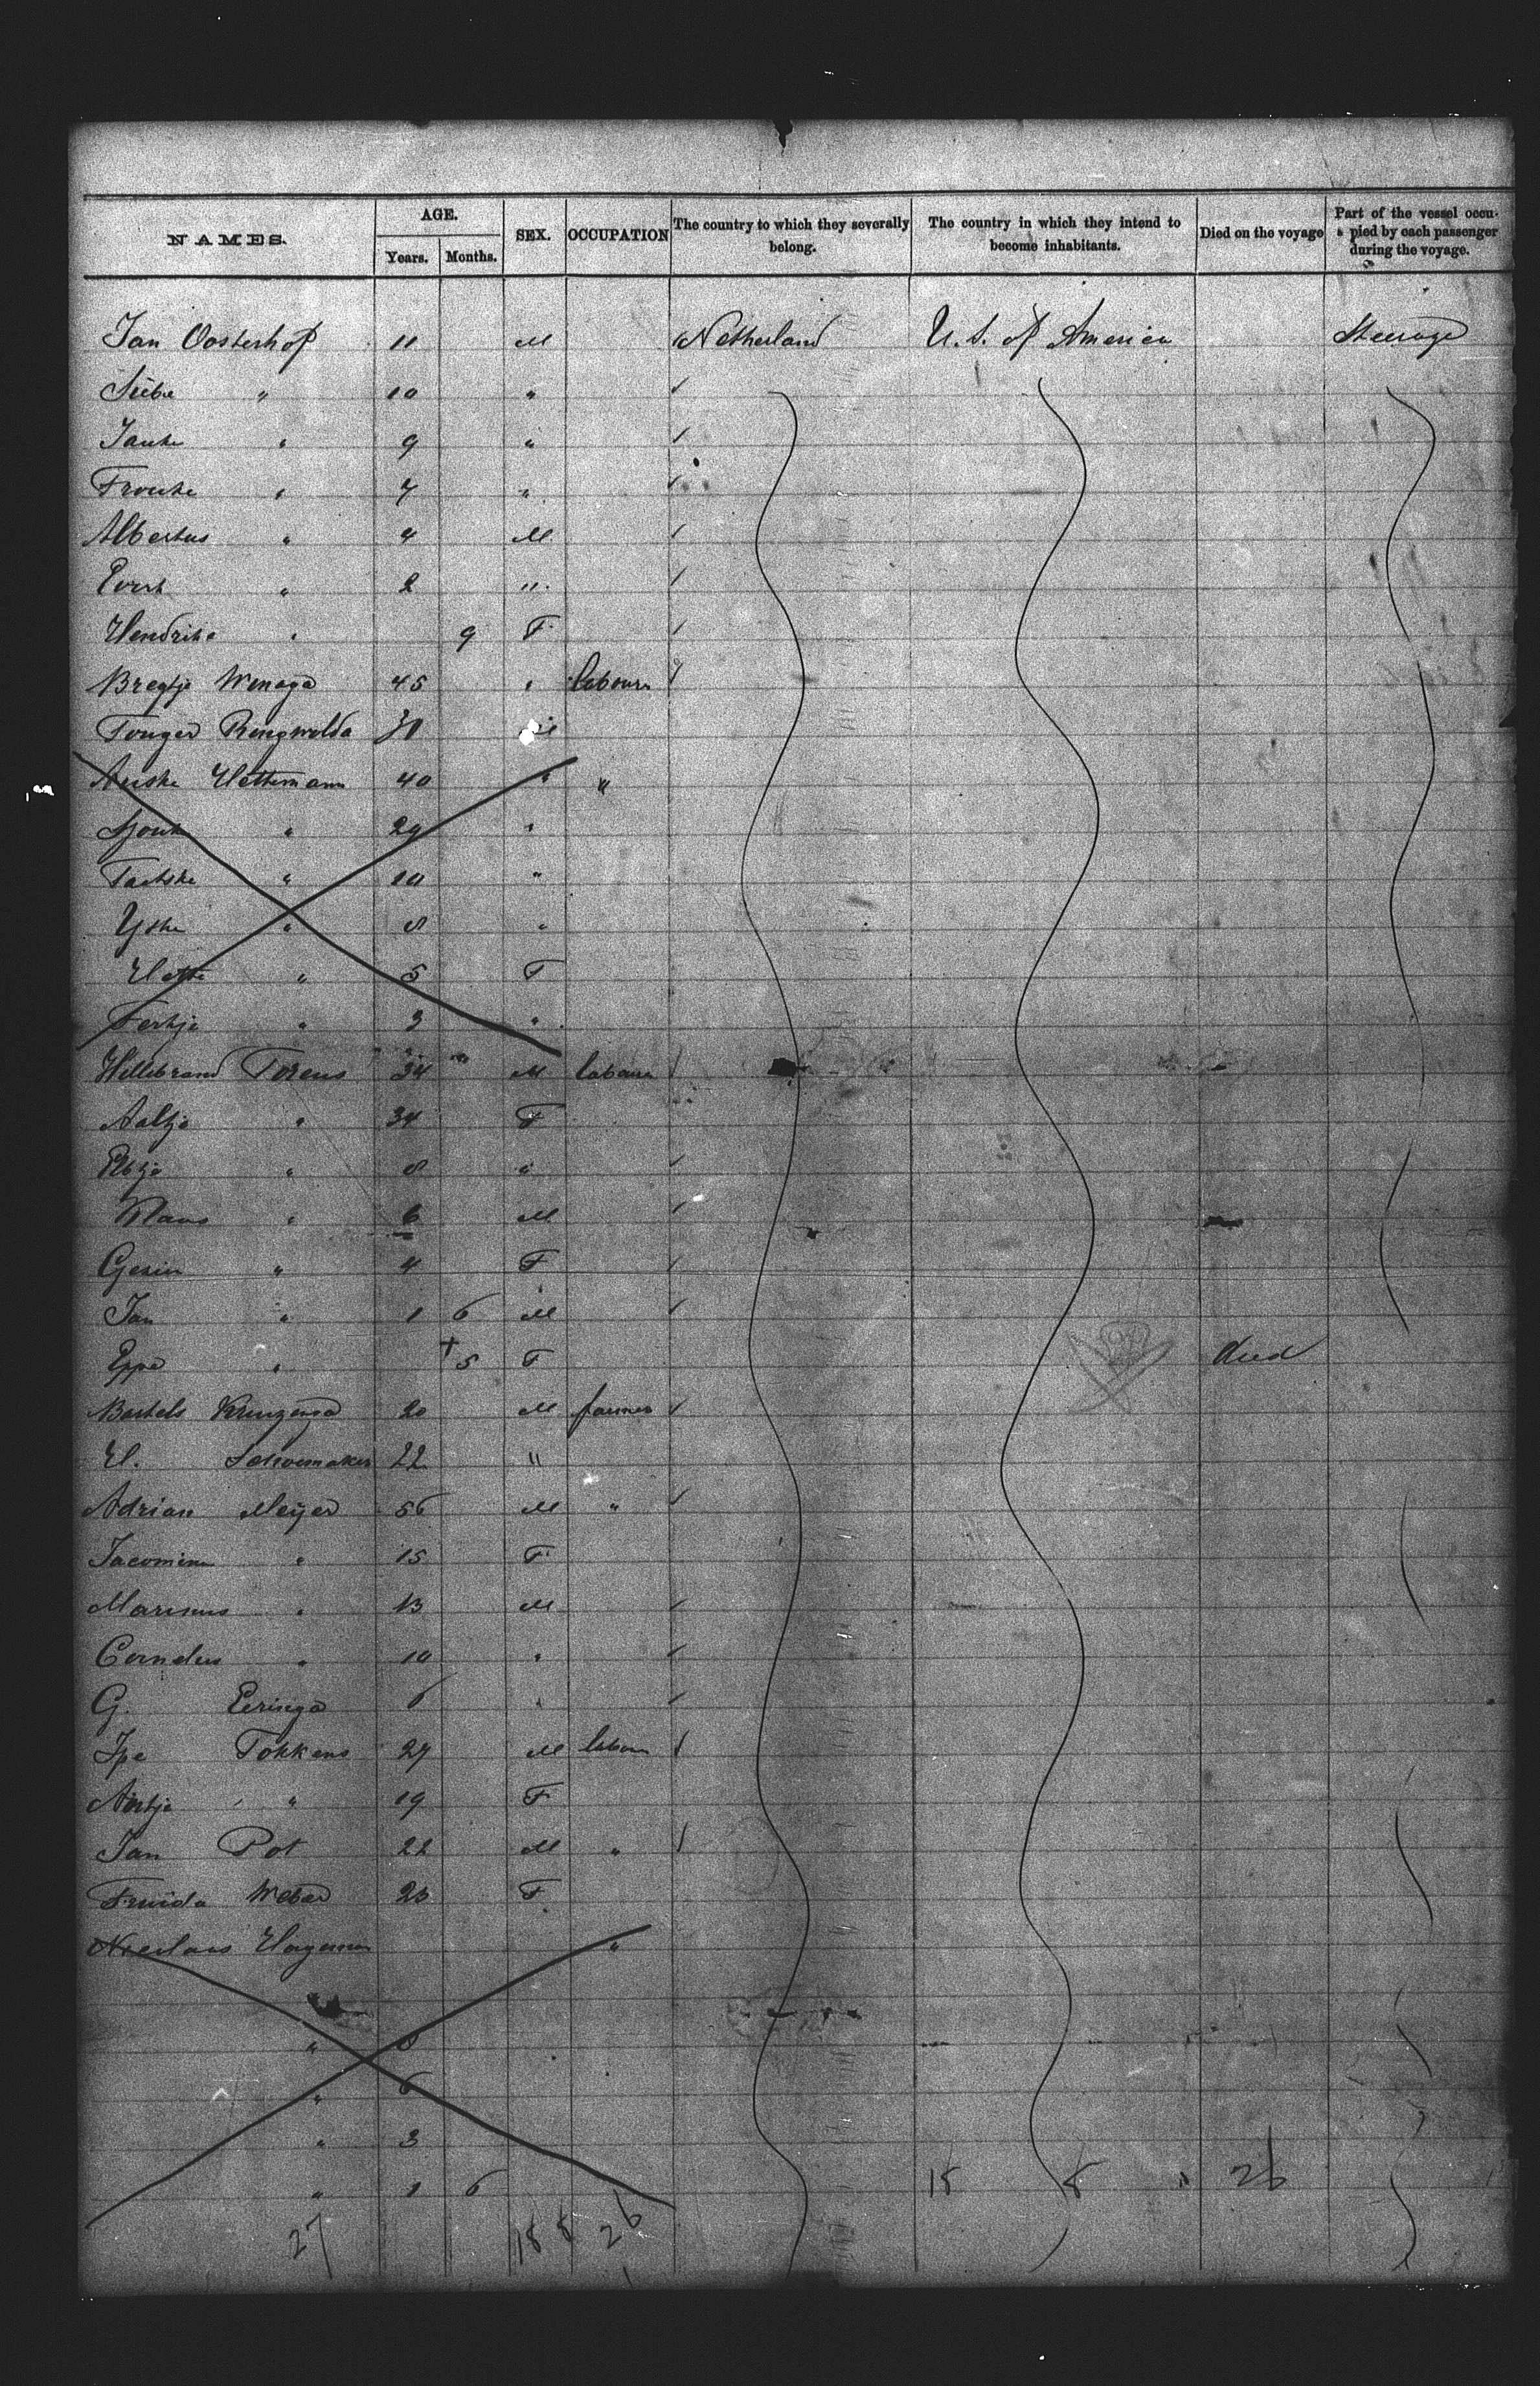 NAMES. AGE. Years. Months. SEX. OCCUPATION The country to which they severally belong. The country in which they intend to become inhabitants. Died on the voyage Part of the vessel occupied by each passenger during the voyage.
Jan Oosterhof 11 M Netherland U. S. of America Steerage
Siebe " 10 "
Jauke " 9 "
Frouke " 7 "
Albertus " 4 M
Evert " 2 "
Hendrike " 9 F
Bregtje Wenaga 45 " labourer
Touger Ringwolda 31 M
Auske Hettemann 40 " "
Sjouke " 29 "
Taetske " 10 "
Yske " 8 "
Hette " 5 F
Fertje " 3 "
Hillebrand Torens 34 M labourer
Aaltje " 34 F
Elbtje " 8 "
Klaas " 6 M
Gesin " 4 F
Jan " 1 6 M
Eppe " + 5 F died
Bartels Kruizenga 20 M farmer
H. Schoemaker 22 "
Adrian Meijer 56 M "
Jacomina " 15 F
Marinus " 13 M
Cornelus " 10 "
G. Eeringa 6 "
Ipe Tokkens 27 M labour
Antje " 19 F
Jan Pot 22 M "
Weber 23 F
Nicolaas Hageman "
" 8
" 6
" 3
" 1 6 18 8 26
27 18 8 26